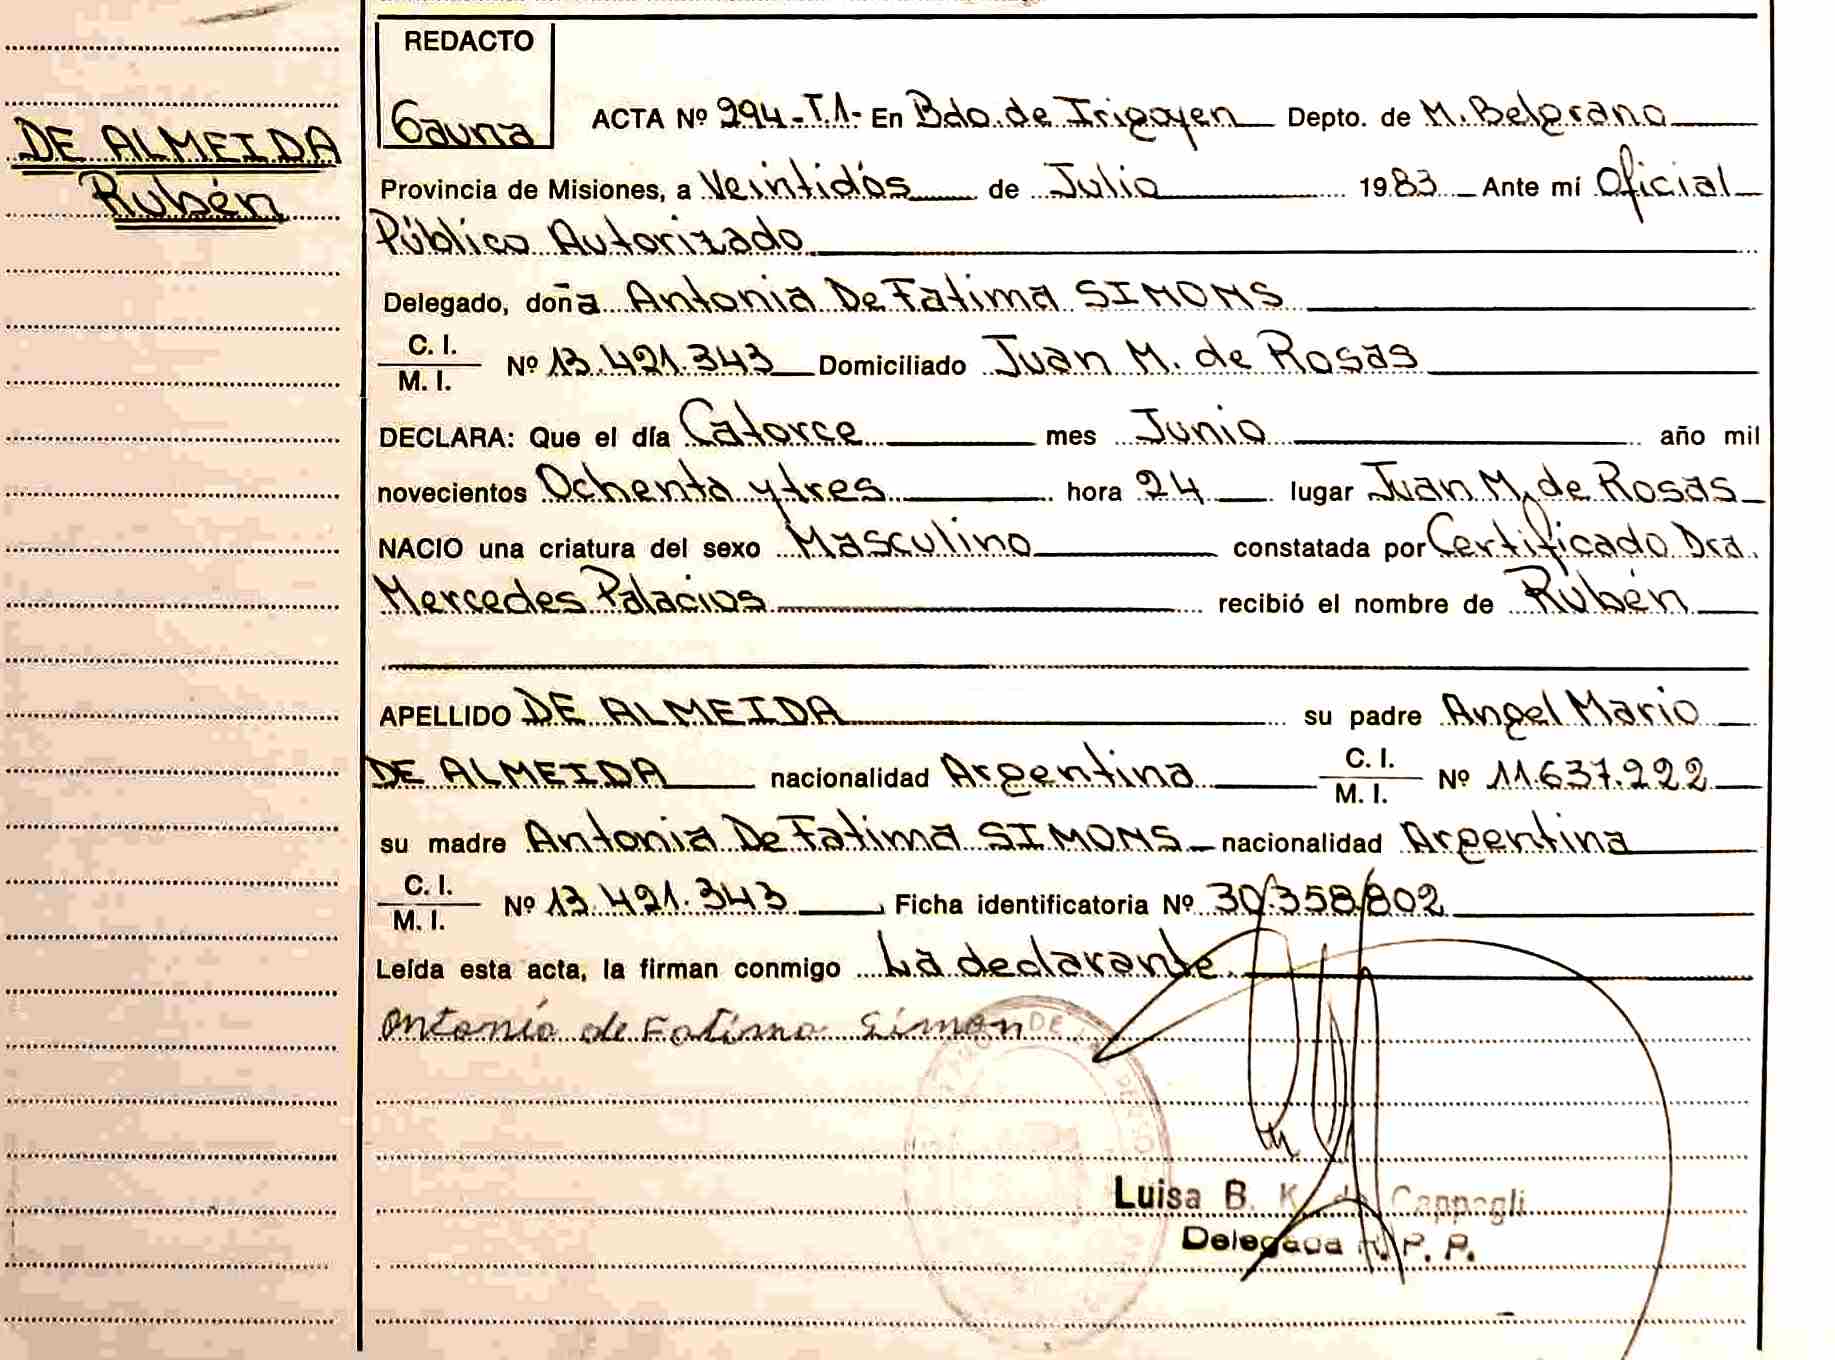 DE ALMEIDA
Rubén
REDACTO
Gauna
ACTA Nº 294-T.1- En Bdo. de Irigoyen Depto. de M. Belgrano
Provincia de Misiones, a Veintidós de Julio 1983 Ante mí Oficial
Público Autorizado
Delegado, doña Antonia De Fatima SIMONS
C. I.
M. I. Nº 13.421.343 Domiciliado Juan M. de Rosas
DECLARA: Que el día Catorce mes Junio año mil
novecientos Ochenta y tres hora 24 lugar Juan M. de Rosas
NACIO una criatura del sexo Masculino constatada por Certificado Dra.
Mercedes Palacios recibió el nombre de Rubén
APELLIDO DE ALMEIDA su padre Angel Mario
DE ALMEIDA nacionalidad Argentina C. I. M. I. Nº 11.637.222
su madre Antonia De Fatima SIMONS nacionalidad Argentina
C. I.
M. I. Nº 13.421.343 Ficha identificatoria Nº 30.358.802
Leída esta acta, la firman conmigo La declarante
Antonia de Fatima Simon
Luisa B. K. de Cappagli
Delegada R. P. P.